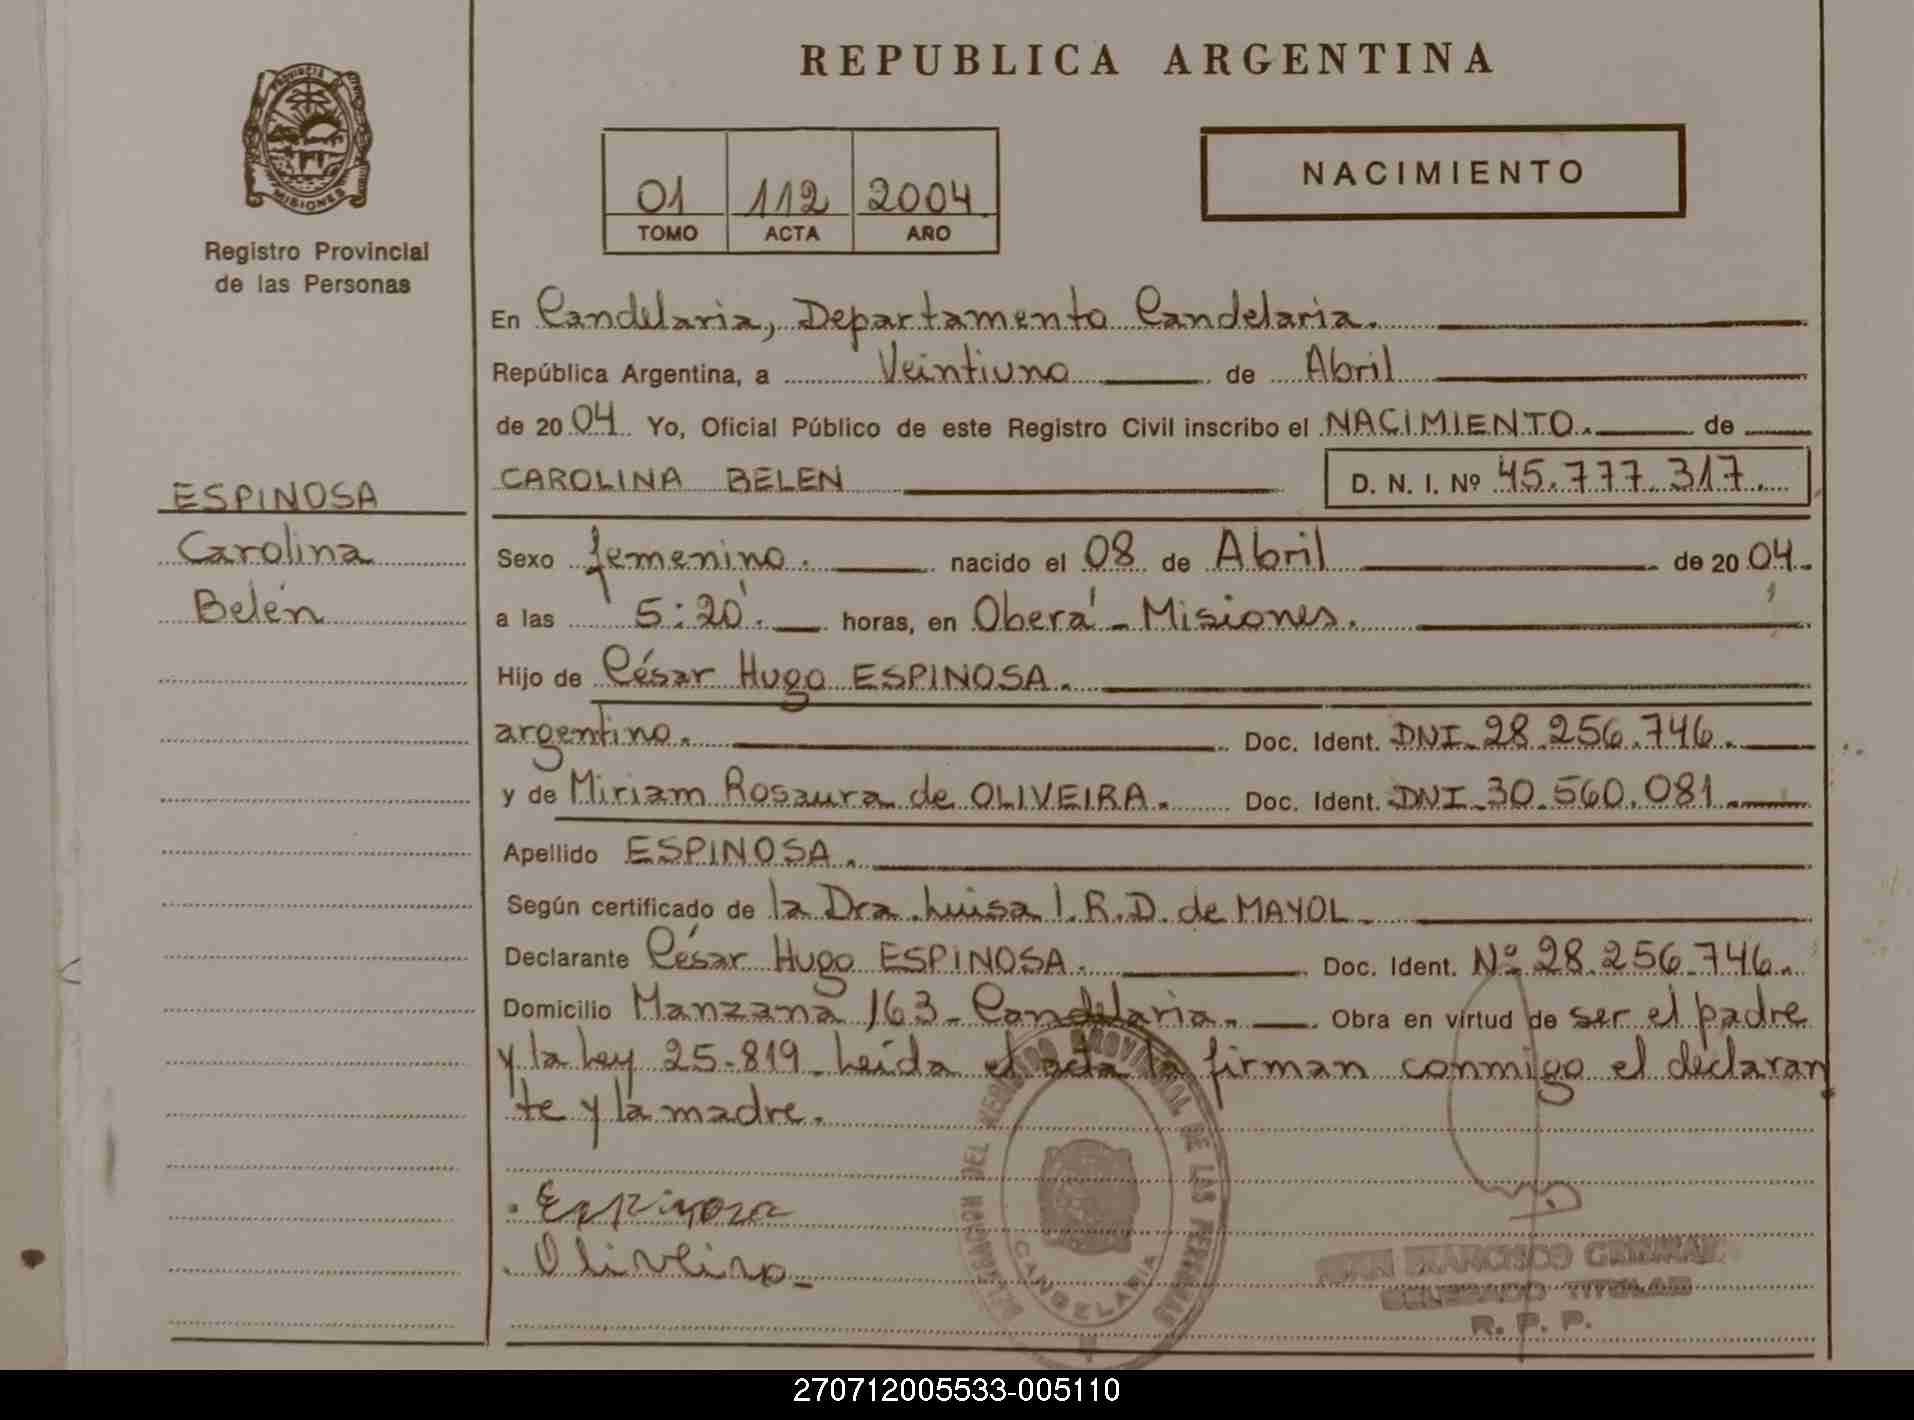 REPUBLICA ARGENTINA
PROVINCIA DE MISIONES
Registro Provincial
de las Personas
01 112 2004
TOMO ACTA AÑO
NACIMIENTO
ESPINOSA
Carolina
Belén
En Candelaria, Departamento Candelaria.
República Argentina, a Veintiuno de Abril
de 2004 Yo, Oficial Público de este Registro Civil inscribo el NACIMIENTO. de
CAROLINA BELEN D. N. I. Nº 45.777.317.
Sexo femenino. nacido el 08 de Abril de 2004.
a las 5:20'. horas, en Oberá - Misiones.
Hijo de César Hugo ESPINOSA.
argentino. Doc. Ident. DNI. 28.256.746.
y de Miriam Rosaura de OLIVEIRA. Doc. Ident. DNI. 30.560.081
Apellido ESPINOSA.
Según certificado de la Dra. Luisa I. R. D. de MAYOL.
Declarante César Hugo ESPINOSA. Doc. Ident. Nº 28.256.746.
Domicilio Manzana 163 - Candelaria. Obra en virtud de ser el padre
y la Ley 25.819. Leída el acta la firman conmigo el declaran
te y la madre.
Espinosa
Oliveira
DELEGACION DEL REGISTRO PROVINCIAL DE LAS PERSONAS
CANDELARIA
JUAN FRANCISCO
DELEGADO TITULAR
R. P. P.
270712005533-005110